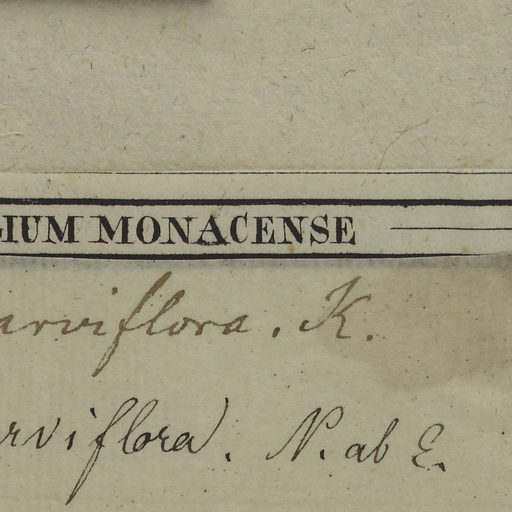 IUM MONACENSE
arviflora. K.
rviflora. N. ab E.